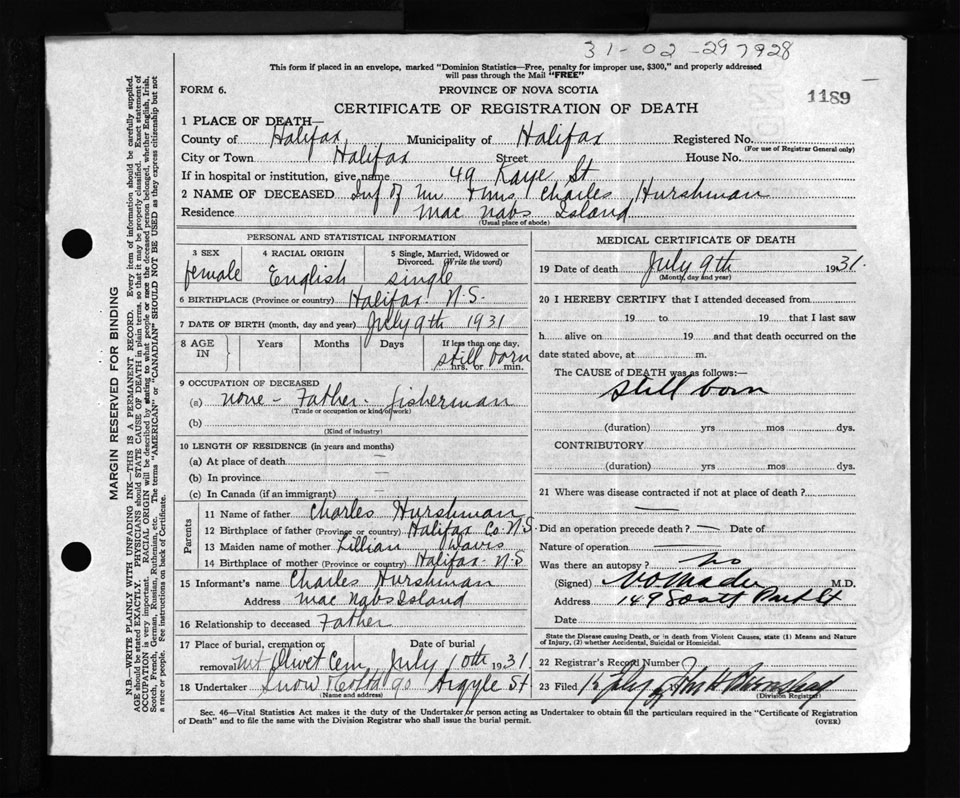 31-02-297928
This form if placed in an envelope, marked "Dominion Statistics—Free, penalty for improper use, $300," and properly addressed
will pass through the Mail "FREE"
FORM 6.
PROVINCE OF NOVA SCOTIA
1189
CERTIFICATE OF REGISTRATION OF DEATH
1 PLACE OF DEATH—
County of Halifax Municipality of Halifax Registered No.
(For use of Registrar General only)
City or Town Halifax Street House No.
If in hospital or institution, give name 49 Kaye St
2 NAME OF DECEASED Inf of Mr & Mrs Charles Hurshman
Residence Mac Nabs Island
(Usual place of abode)
PERSONAL AND STATISTICAL INFORMATION
3 SEX 4 RACIAL ORIGIN 5 Single, Married, Widowed or
Divorced. (Write the word)
female English single
6 BIRTHPLACE (Province or country) Halifax N.S.
7 DATE OF BIRTH (month, day and year) July 9th 1931
8 AGE IN Years Months Days If less than one day,
still born
hrs. or min.
9 OCCUPATION OF DECEASED
(a) none - Father - fisherman
(Trade or occupation or kind of work)
(b)
(Kind of industry)
10 LENGTH OF RESIDENCE (in years and months)
(a) At place of death —
(b) In province —
(c) In Canada (if an immigrant) —
Parents
11 Name of father Charles Hurshman
12 Birthplace of father (Province or country) Halifax Co N.S
13 Maiden name of mother Lillian Davis
14 Birthplace of mother (Province or country) Halifax N.S
15 Informant's name Charles Hurshman
Address Mac Nabs Island
16 Relationship to deceased Father
17 Place of burial, cremation or Date of burial
removal Mt Olivet Cem July 10th 1931
18 Undertaker Snow & Co Ltd 90 Argyle St
(Name and address)
MEDICAL CERTIFICATE OF DEATH
19 Date of death July 9th 1931.
(Month, day and year)
20 I HEREBY CERTIFY that I attended deceased from
19 to 19 that I last saw
h alive on 19 and that death occurred on the
date stated above, at m.
The CAUSE of DEATH was as follows:—
still born
(duration) yrs mos dys.
CONTRIBUTORY
(duration) yrs mos dys.
21 Where was disease contracted if not at place of death?
—
Did an operation precede death? — Date of
Nature of operation —
Was there an autopsy? no
(Signed) V. O. Mader M.D.
Address 149 South Park St
Date
State the Disease causing Death, or in death from Violent Causes, state (1) Means and Nature
of Injury, (2) whether Accidental, Suicidal or Homicidal.
22 Registrar's Record Number
23 Filed July
(Division Registrar)
Sec. 46—Vital Statistics Act makes it the duty of the Undertaker or person acting as Undertaker to obtain all the particulars required in the "Certificate of Registration
of Death" and to file the same with the Division Registrar who shall issue the burial permit.
(OVER)
MARGIN RESERVED FOR BINDING
N.B.—WRITE PLAINLY WITH UNFADING INK—THIS IS A PERMANENT RECORD. Every item of information should be carefully supplied.
AGE should be stated EXACTLY. PHYSICIANS should STATE CAUSE OF DEATH in plain terms, so that it may be properly classified. Exact statement of
OCCUPATION is very important. RACIAL ORIGIN will be described by stating to what people or race the deceased person belonged, whether English, Irish,
Scotch, French, German, Russian, Ruthenian, etc. The terms "AMERICAN" or "CANADIAN" SHOULD NOT BE USED as they express citizenship but not
a race or people. See instructions on back of Certificate.